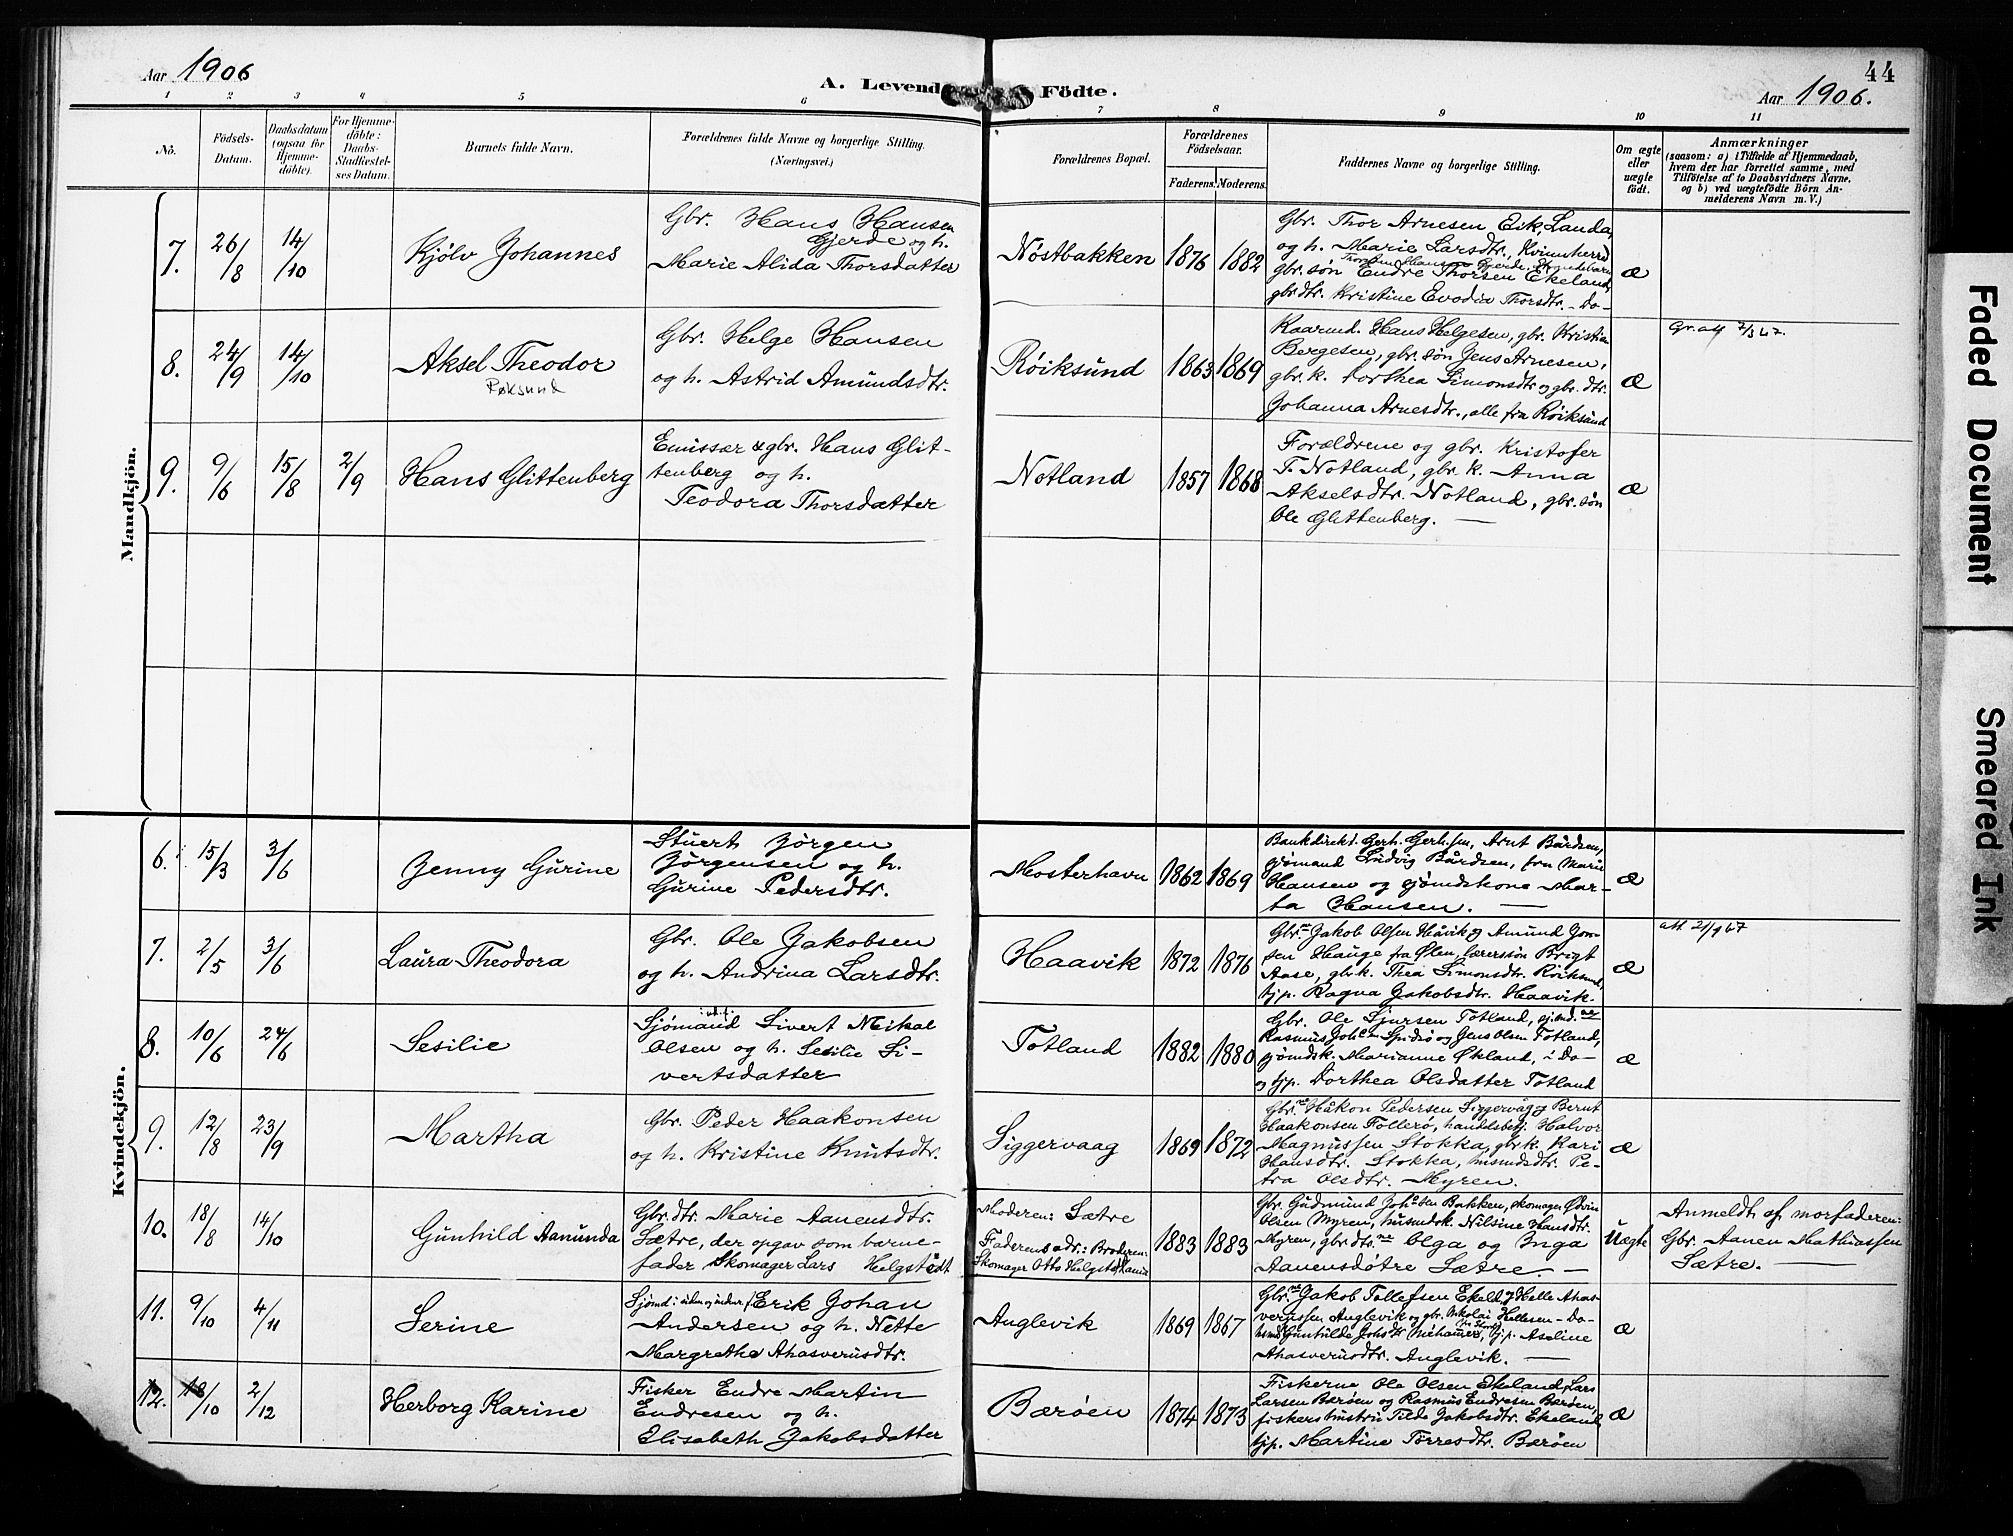 Aar 1906
A. Levende Födte.
44
Aar 1906.
1 2 3 4 5 6 7 8 9 10 11
No.
Födsels-
Datum.
Daabsdatum
(ogsaa for
Hjemme-
döbte).
For Hjemme-
döbte:
Daabs-
Stadfæstel-
ses Datum.
Barnets fulde Navn.
Forældrenes fulde Navne og borgerlige Stilling.
(Næringsvei.)
Forældrenes Bopæl.
Forældrenes
Födselsaar.
Faderens. Moderens.
Faddernes Navne og borgerlige Stilling.
Om ægte
eller
uægte
født.
Anmærkninger
(saasom: a) i Tilfælde af Hjemmedaab,
hvem der har forrettet samme, med
Tilføielse af to Daabsvidners Navne,
og b) ved uægtefödte Börn An-
melderens Navn m. V.)
Mandkjön.
7. 26/8 14/10 Kjølv Johannes
Gbr. Hans Hansen
Gjerde og h.
Marie Alida Thorsdatter
Nøstbakken 1876 1882
Gbr. Thor Arnesen Eik, Landa,
og h. Marie Larsdtr., Kvinnherred
gbr. søn Endre Thorsen Ekeland,
gbr. dtr. Kristine Evodia Thorsdtr. - Do-
Æ
8. 24/9 14/10 Aksel Theodor
Røksund
Gbr. Helge Hansen
og h. Astrid Amundsdtr.
Røiksund 1863 1869
Kaarmd. Hans Helgesen, gbr. Kristian
Bergesen, gbr. søn Jens Arnesen,
gbr. k. Dorthea Simonsdtr og gbr. dtr.
Johanna Arnesdtr., alle fra Røiksund
Æ
9. 9/6 15/8 2/9 Hans Glittenberg
Emissær & gbr. Hans Glit-
tenberg og h.
Teodora Thorsdatter
Notland 1857 1868
Forældrene og gbr. Kristofer
T. Notland, gbr. k. Anna
Akselsdtr. Notland, gbr. søn
Ole Glittenberg. —
Æ
Kvindekjön.
6. 15/3 3/6 Jenny Gurine
Stuert Jørgen
Jørgensen og h.
Gurine Pedersdtr.
Mosterhavn 1862 1869
Bankdirekt. Gerh. Gerhsen, Arnt Bårdsen,
sjømand Ludvig Bårdsen, fru Marie
Hansen og sjømdskone Mar-
ta Hansen. —
Æ
7. 2/5 3/6 Laura Theodora
Gbr. Ole Jakobsen
og h. Andrina Larsdtr.
Haavik 1872 1876
Gbrne Jakob Olsen Håvik og Amund Jon-
sen Hauge fra Ølen, lærerssøn Brigt
Aase, gbr. k. Thea Simonsdtr. Røiksund,
tjp. Ragna Jakobsdtr. Haavik.
Æ
8. 10/6 24/6 Sesilie
Sjømand Sivert Mikal
Olsen og h. Sesilie Si-
vertsdatter
Totland 1882 1880
Gbr. Ole Sjursen Totland, sjømdne
Rasmus Johsen Spidsø og Jens Olsen Totland,
sjømdsk. Marianne Økland, i Do-
og tjp. Dorthea Olsdatter Totland
Æ
9. 12/8 23/9 Martha
Gbr. Peder Haakonsen
og h. Kristine Knutsdtr.
Siggervaag 1869 1872
Gbrne Håkon Pedersen Siggervåg og Bernt
Haakonsen Follerø, handelsbetj. Halvor
Magnussen Stokka, gbr. k. Kari
Hansdtr. Stokka, husmdsdtr. Pe-
tra Olsdtr. Myren.
Æ
10. 18/8 14/10 Gunhild Aamunda
Gbr. dtr. Marie Aanensdtr.
Sætre, der opgav som barne-
fader Skomager Lars Helgstødt
Moderen: Sætre
Faderens adr.: Broderen:
Skomager Otto Helgstødt,
1883 1883
Gbr. Gudmund Johsen Bakken, skomager Edvin
Olsen Myren, husmdsk. Nilsine Hansdtr.
Myren, gbr. dtrne Olga og Inga
Aanensdøtre Sætre. —
Uægte
Anmeldt af morfaderen:
Gbr. Aanen Mathiassen
Sætre. —
11. 9/10 4/11 Serine
Erik Johan
Andersen og h. Nette
Margrethe Ahasverusdtr.
Anglevik 1869 1867
Gbrne Jakob Tollefsen Ekeld og Helle Ahas-
verussen Anglevik og gbr. Nikolai Hellesen - Do-
Gunhilde Johsdtr tjp. Aseline
Ahasverusdtr. Anglevik. —
Æ
12. 18/10 2/12 Herborg Karine
Fisker Endre Martin
Endresen og h.
Elisabeth Jakobsdatter
Bærøen 1874 1873
Fiskerne Ole Olsen Ekeland, Lars
Larsen Bærøen og Rasmus Endresen Bærøen,
fiskers hustru Tilda Jakobsdtr. Ekeland,
tjp. Martine Torresdtr. Bærøen
Æ
Faded Document
Smeared Ink